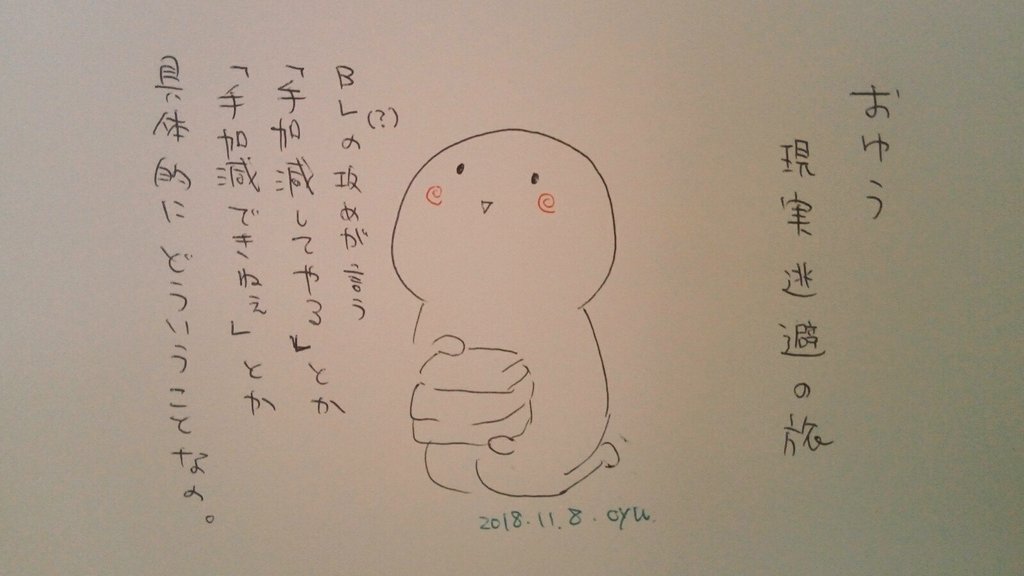 おゆう
現実逃避の旅
BL(?)の攻めが言う
「手加減してやる」とか
「手加減できねぇ」とか
具体的にどういうことなの。
2018.11.8.oyu